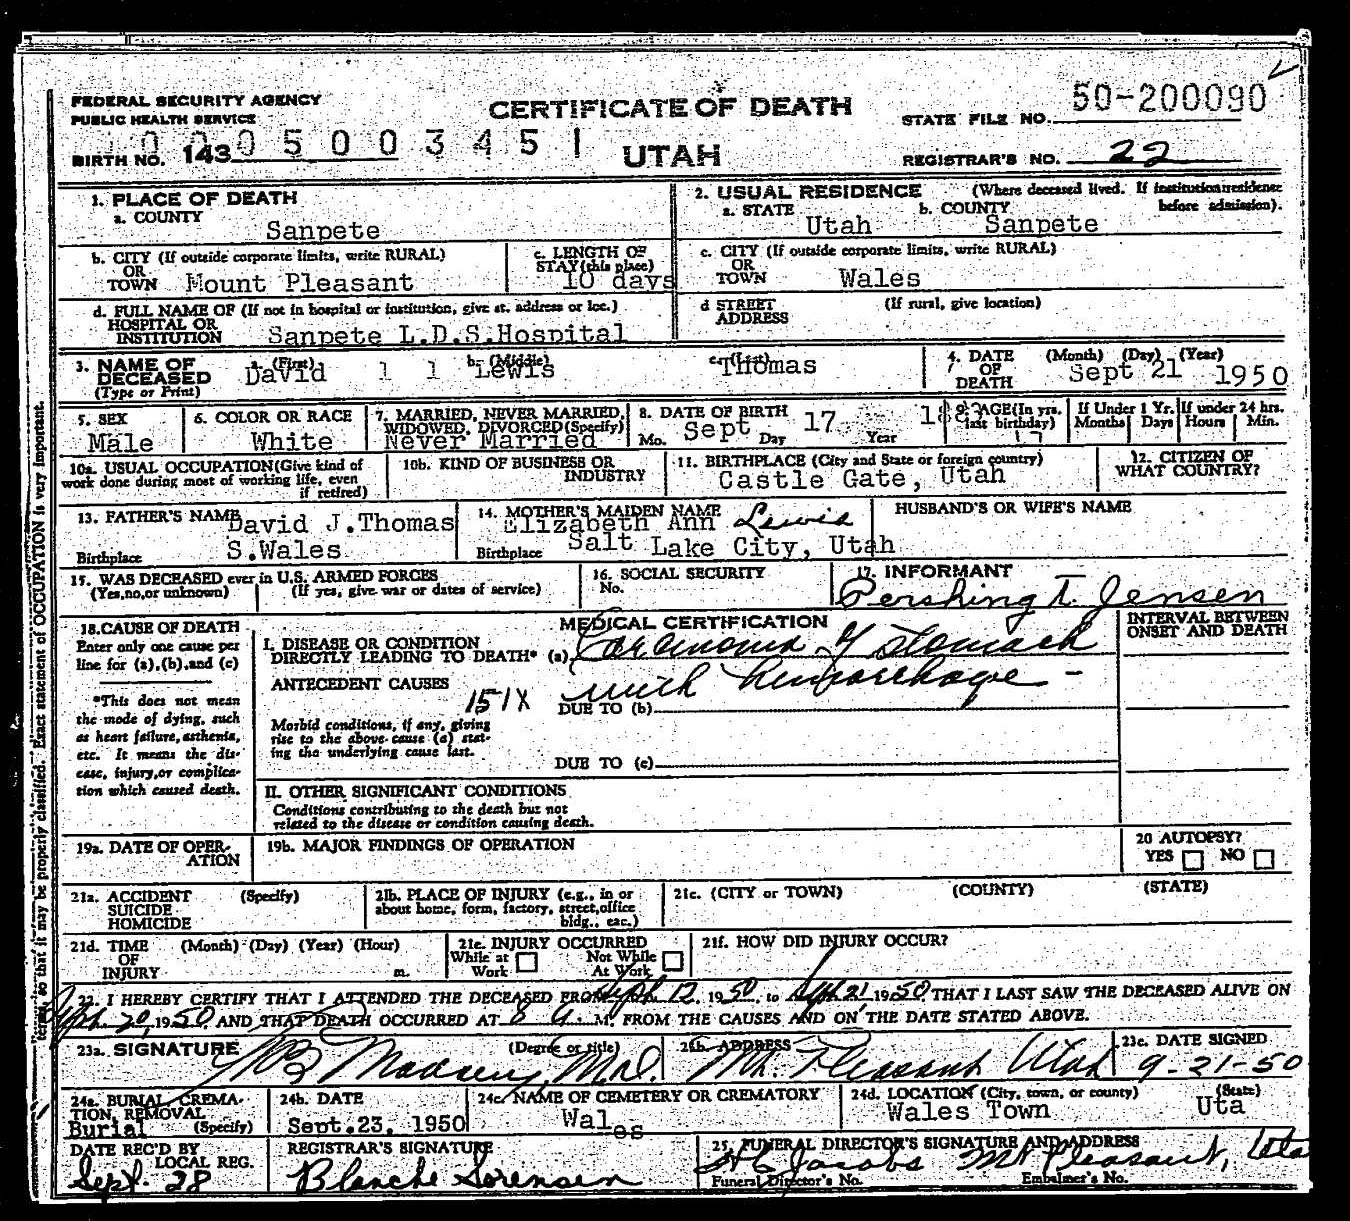 FEDERAL SECURITY AGENCY
PUBLIC HEALTH SERVICE
CERTIFICATE OF DEATH
STATE FILE NO. 50-200090
0005003451
BIRTH NO. 143
UTAH
REGISTRAR'S NO. 22
1. PLACE OF DEATH
a. COUNTY Sanpete
2. USUAL RESIDENCE (Where deceased lived. If institution: residence before admission).
a. STATE Utah b. COUNTY Sanpete
b. CITY (If outside corporate limits, write RURAL) OR TOWN Mount Pleasant
c. LENGTH OF STAY (this place) 10 days
c. CITY (If outside corporate limits, write RURAL) OR TOWN Wales
d. FULL NAME OF (If not in hospital or institution, give st. address or loc.) HOSPITAL OR INSTITUTION Sanpete L.D.S.Hospital
d STREET ADDRESS (If rural, give location)
3. NAME OF DECEASED (Type or Print) a. (First) David 1 1 b. (Middle) Lewis c. (Last) Thomas
4. DATE OF DEATH (Month) (Day) (Year) Sept 21 1950
5. SEX Male
6. COLOR OR RACE White
7. MARRIED, NEVER MARRIED, WIDOWED, DIVORCED (Specify) Never Married
8. DATE OF BIRTH Mo. Sept Day 17 Year
9. AGE (In yrs. last birthday)
If Under 1 Yr. Months Days
If under 24 hrs. Hours Min.
10a. USUAL OCCUPATION (Give kind of work done during most of working life, even if retired)
10b. KIND OF BUSINESS OR INDUSTRY
11. BIRTHPLACE (City and State or foreign country) Castle Gate, Utah
12. CITIZEN OF WHAT COUNTRY?
13. FATHER'S NAME David J.Thomas
Birthplace S.Wales
14. MOTHER'S MAIDEN NAME Elizabeth Ann Lewis
Birthplace Salt Lake City, Utah
HUSBAND'S OR WIFE'S NAME
15. WAS DECEASED ever in U.S. ARMED FORCES (Yes,no,or unknown) (If yes, give war or dates of service)
16. SOCIAL SECURITY No.
17. INFORMANT Pershing T. Jensen
18. CAUSE OF DEATH
Enter only one cause per line for (a),(b),and (c)
*This does not mean the mode of dying, such as heart failure, asthenia, etc. It means the disease, injury,or complication which caused death.
MEDICAL CERTIFICATION
INTERVAL BETWEEN ONSET AND DEATH
I. DISEASE OR CONDITION DIRECTLY LEADING TO DEATH* (a) Carcinoma of stomach
with hemorrhage -
ANTECEDENT CAUSES 151X
DUE TO (b)
Morbid conditions, if any, giving rise to the above cause (a) stating the underlying cause last.
DUE TO (c)
II. OTHER SIGNIFICANT CONDITIONS
Conditions contributing to the death but not related to the disease or condition causing death.
19a. DATE OF OPERATION
19b. MAJOR FINDINGS OF OPERATION
20 AUTOPSY? YES NO
21a. ACCIDENT SUICIDE HOMICIDE (Specify)
21b. PLACE OF INJURY (e.g., in or about home, form, factory, street,office bldg., etc.)
21c. (CITY or TOWN) (COUNTY) (STATE)
21d. TIME OF INJURY (Month) (Day) (Year) (Hour) m.
21e. INJURY OCCURRED While at Work Not While At Work
21f. HOW DID INJURY OCCUR?
22. I HEREBY CERTIFY THAT I ATTENDED THE DECEASED FROM Sept. 12, 1950, to Sept 21, 1950 THAT I LAST SAW THE DECEASED ALIVE ON
Sept. 20, 1950. AND THAT DEATH OCCURRED AT 8 A. M. FROM THE CAUSES AND ON THE DATE STATED ABOVE.
23a. SIGNATURE Madsen, M.D. (Degree or title)
23b. ADDRESS Mt. Pleasant Utah
23c. DATE SIGNED 9-21-50
24a. BURIAL, CREMATION, REMOVAL (Specify) Burial
24b. DATE Sept.23, 1950
24c. NAME OF CEMETERY OR CREMATORY Wales
24d. LOCATION (City, town, or county) (State) Wales Town Uta
DATE REC'D BY LOCAL REG. Sept. 28
REGISTRAR'S SIGNATURE Blanche Sorensen
25. FUNERAL DIRECTOR'S SIGNATURE AND ADDRESS Jacobs Mt Pleasant, Utah
Funeral Director's No. Embalmer's No.
terms, so that it may be properly classified. Exact statement of OCCUPATION is very important.